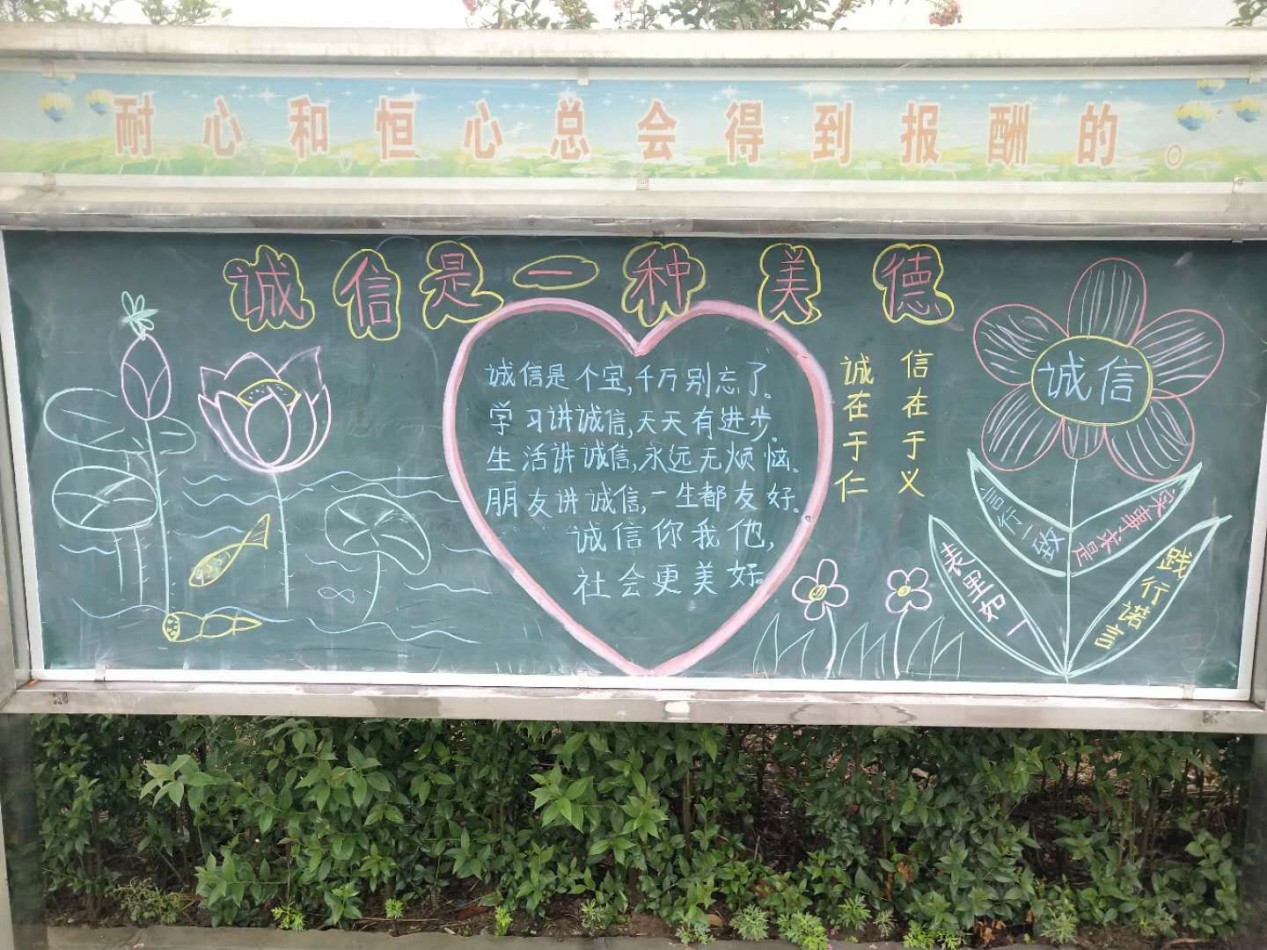 耐心和恒心总会得到报酬的。
诚信是一种美德
诚信是个宝,千万别忘了。
学习讲诚信,天天有进步。
生活讲诚信,永远无烦恼。
朋友讲诚信,一生都友好。
诚信你我他,
社会更美好。
诚在于仁
信在于义
诚信
言行一致
实事求是
表里如一
践行诺言